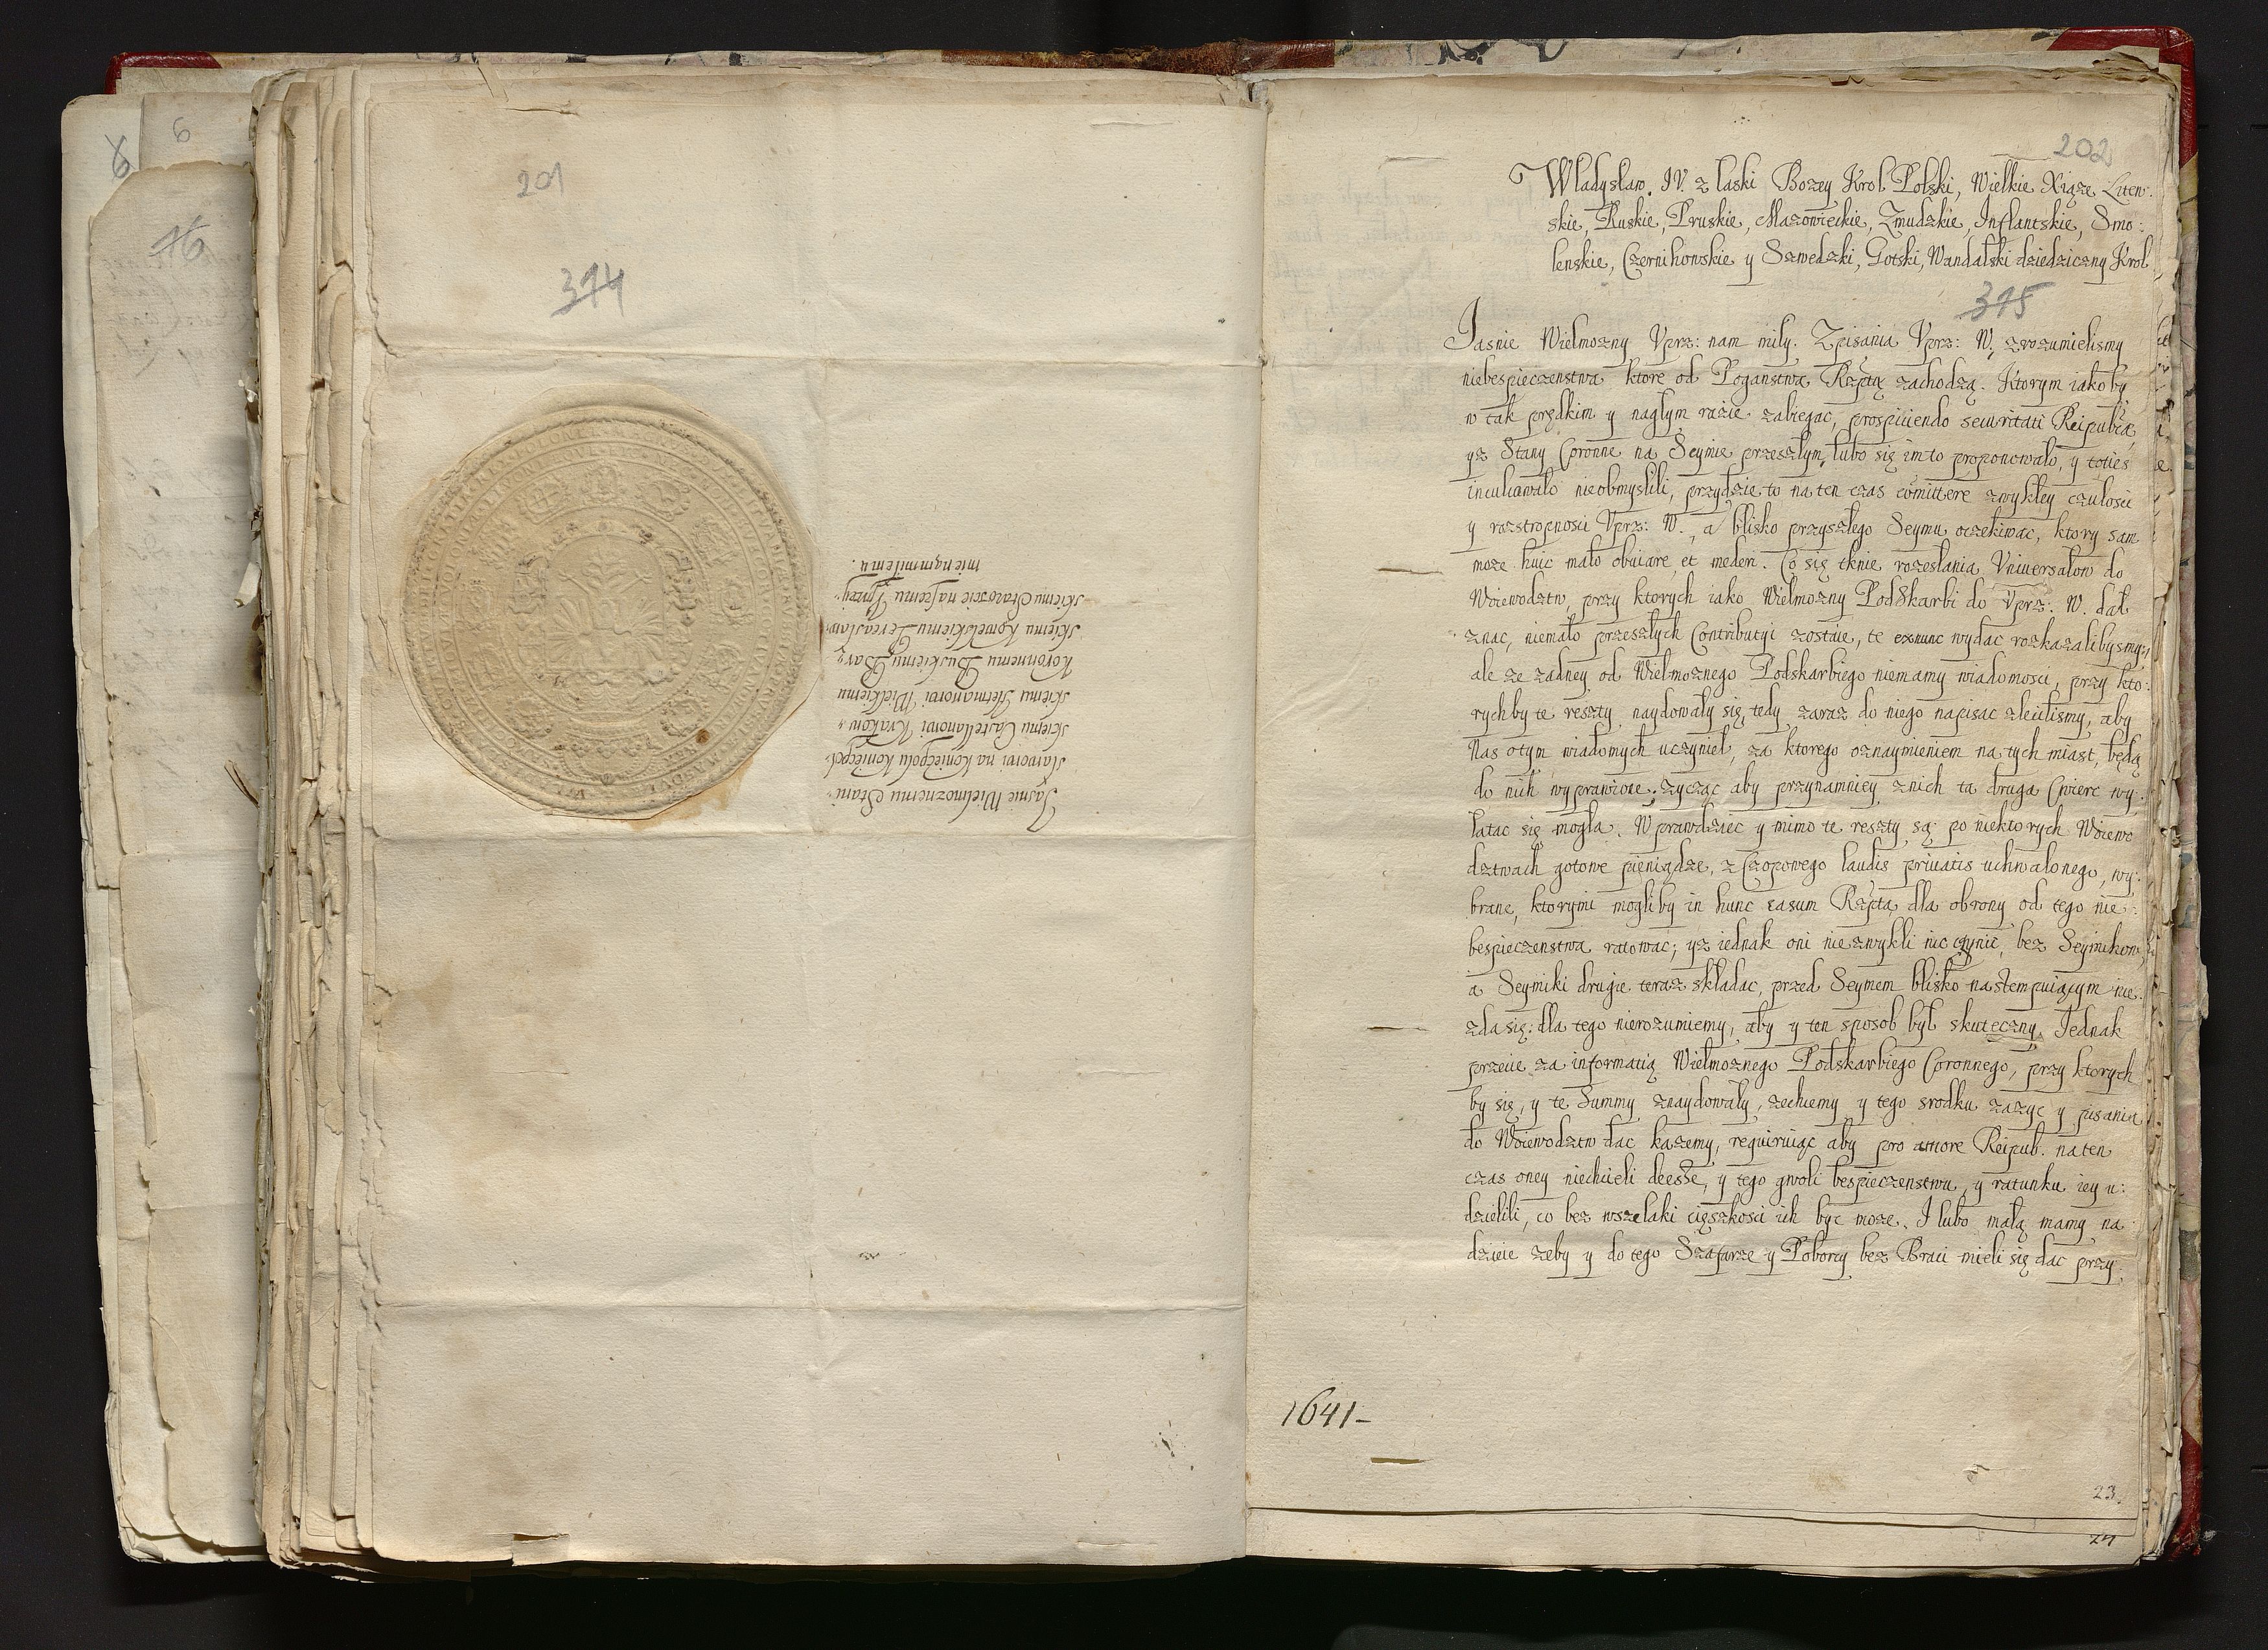 6
6
16
201
374
Jasnie Wielmoznemu Stani:
sławowi na Koniecpolu Koniecpol:
skiemu Castellanowi Krakow:
skiemu Hetmanowi Wielkiemu
Koronnemu Buskiemu Bar:
skiemu Kowelskiemu Pereasław:
skiemu Staroscie naszemu Vprzey:
mie nam miłemu.
202
Władysław IV. z łaski Bozey Krol Polski, Wielkie Xiąze Litew:
skie, Ruskie, Pruskie, Mazowieckie, Zmudzkie, Inflantskie, Smo:
lenskie, Czernihowskie y Szwedzki, Gotski, Wandalski dziedziczny Krol
375
Jasnie Wielmozny Vprz: nam miły. Z pisania Vprz: W. zrozumielismy
niebespieczenstwa ktore od Poganstwa Rzptą zachodzą. Ktorym iakoby
w tak prędkim y nagłym razie zabiegac, prospiciendo securitati Reipublicæ,
yz Stany Coronne na Seymie przeszłym, lubo się im to proponowało, y toties
inculcowało nie obmyslili, przydzie to na ten czas comittere zwykłey czułosci
y rozstropnosci Vprz: W., a blisko przyszłego Seymu oczekiwac, ktory sam
moze huic malo obuiare, et mederi. Co się tknie rozesłania Vniuersałow do
Woiewodztw, przy ktorych iako Wielmozny PodSkarbi do Vprz: W. dał
znac, niemało przeszłych Contributyi zostaie, te exnunc wydac roskazalibysmy,
ale ze zadney od Wielmoznego Podskarbiego niemamy wiadomosci, przy kto:
rychby te reszty naydowały się, tedy zaraz do niego napisac zlecilismy, aby
Nas o tym wiadomych uczynieł, za ktorego oznaymieniem na tych miast, będą
do nich wyprawione, zycząc aby przynamniey z nich ta druga Cwierc wy:
łatac się mogła. W prawdziec y mimo te reszty są po niektorych Woiewo
dztwach gotowe pieniądze, z Czopowego laudis priuatis uchwalonego, wy:
brane, ktorymi mogliby in hunc casum Rzptą dla obrony od tego nie:
bespieczenstwa ratowac; yz iednak oni nie zwykli nic czynic, bez Seymikow,
a Seymiki drugie teraz składac, przed Seymem blisko nastempuiącym nie
zda się: dla tego nierozumiemy, aby y ten sposob był skuteczny. Jednak
przecie za informatią Wielmoznego Podskarbiego Coronnego, przy ktorych
by się, y te Summy znaydowały, zechcemy y tego srodku zazyc y pisania
do Woiewodztw dac kazemy, requiruiąc aby pro amore Reipub. na ten
czas oney niechcieli deesse, y tego gwoli bespieczenstwu, y ratunku iey u:
dzielili, co bez wszelaki cięszkosci ich byc moze. I lubo małą mamy na
dzieie zeby y do tego Szafarze y Poborcy bez Braci mieli się dac przy:
1641-
23.
24